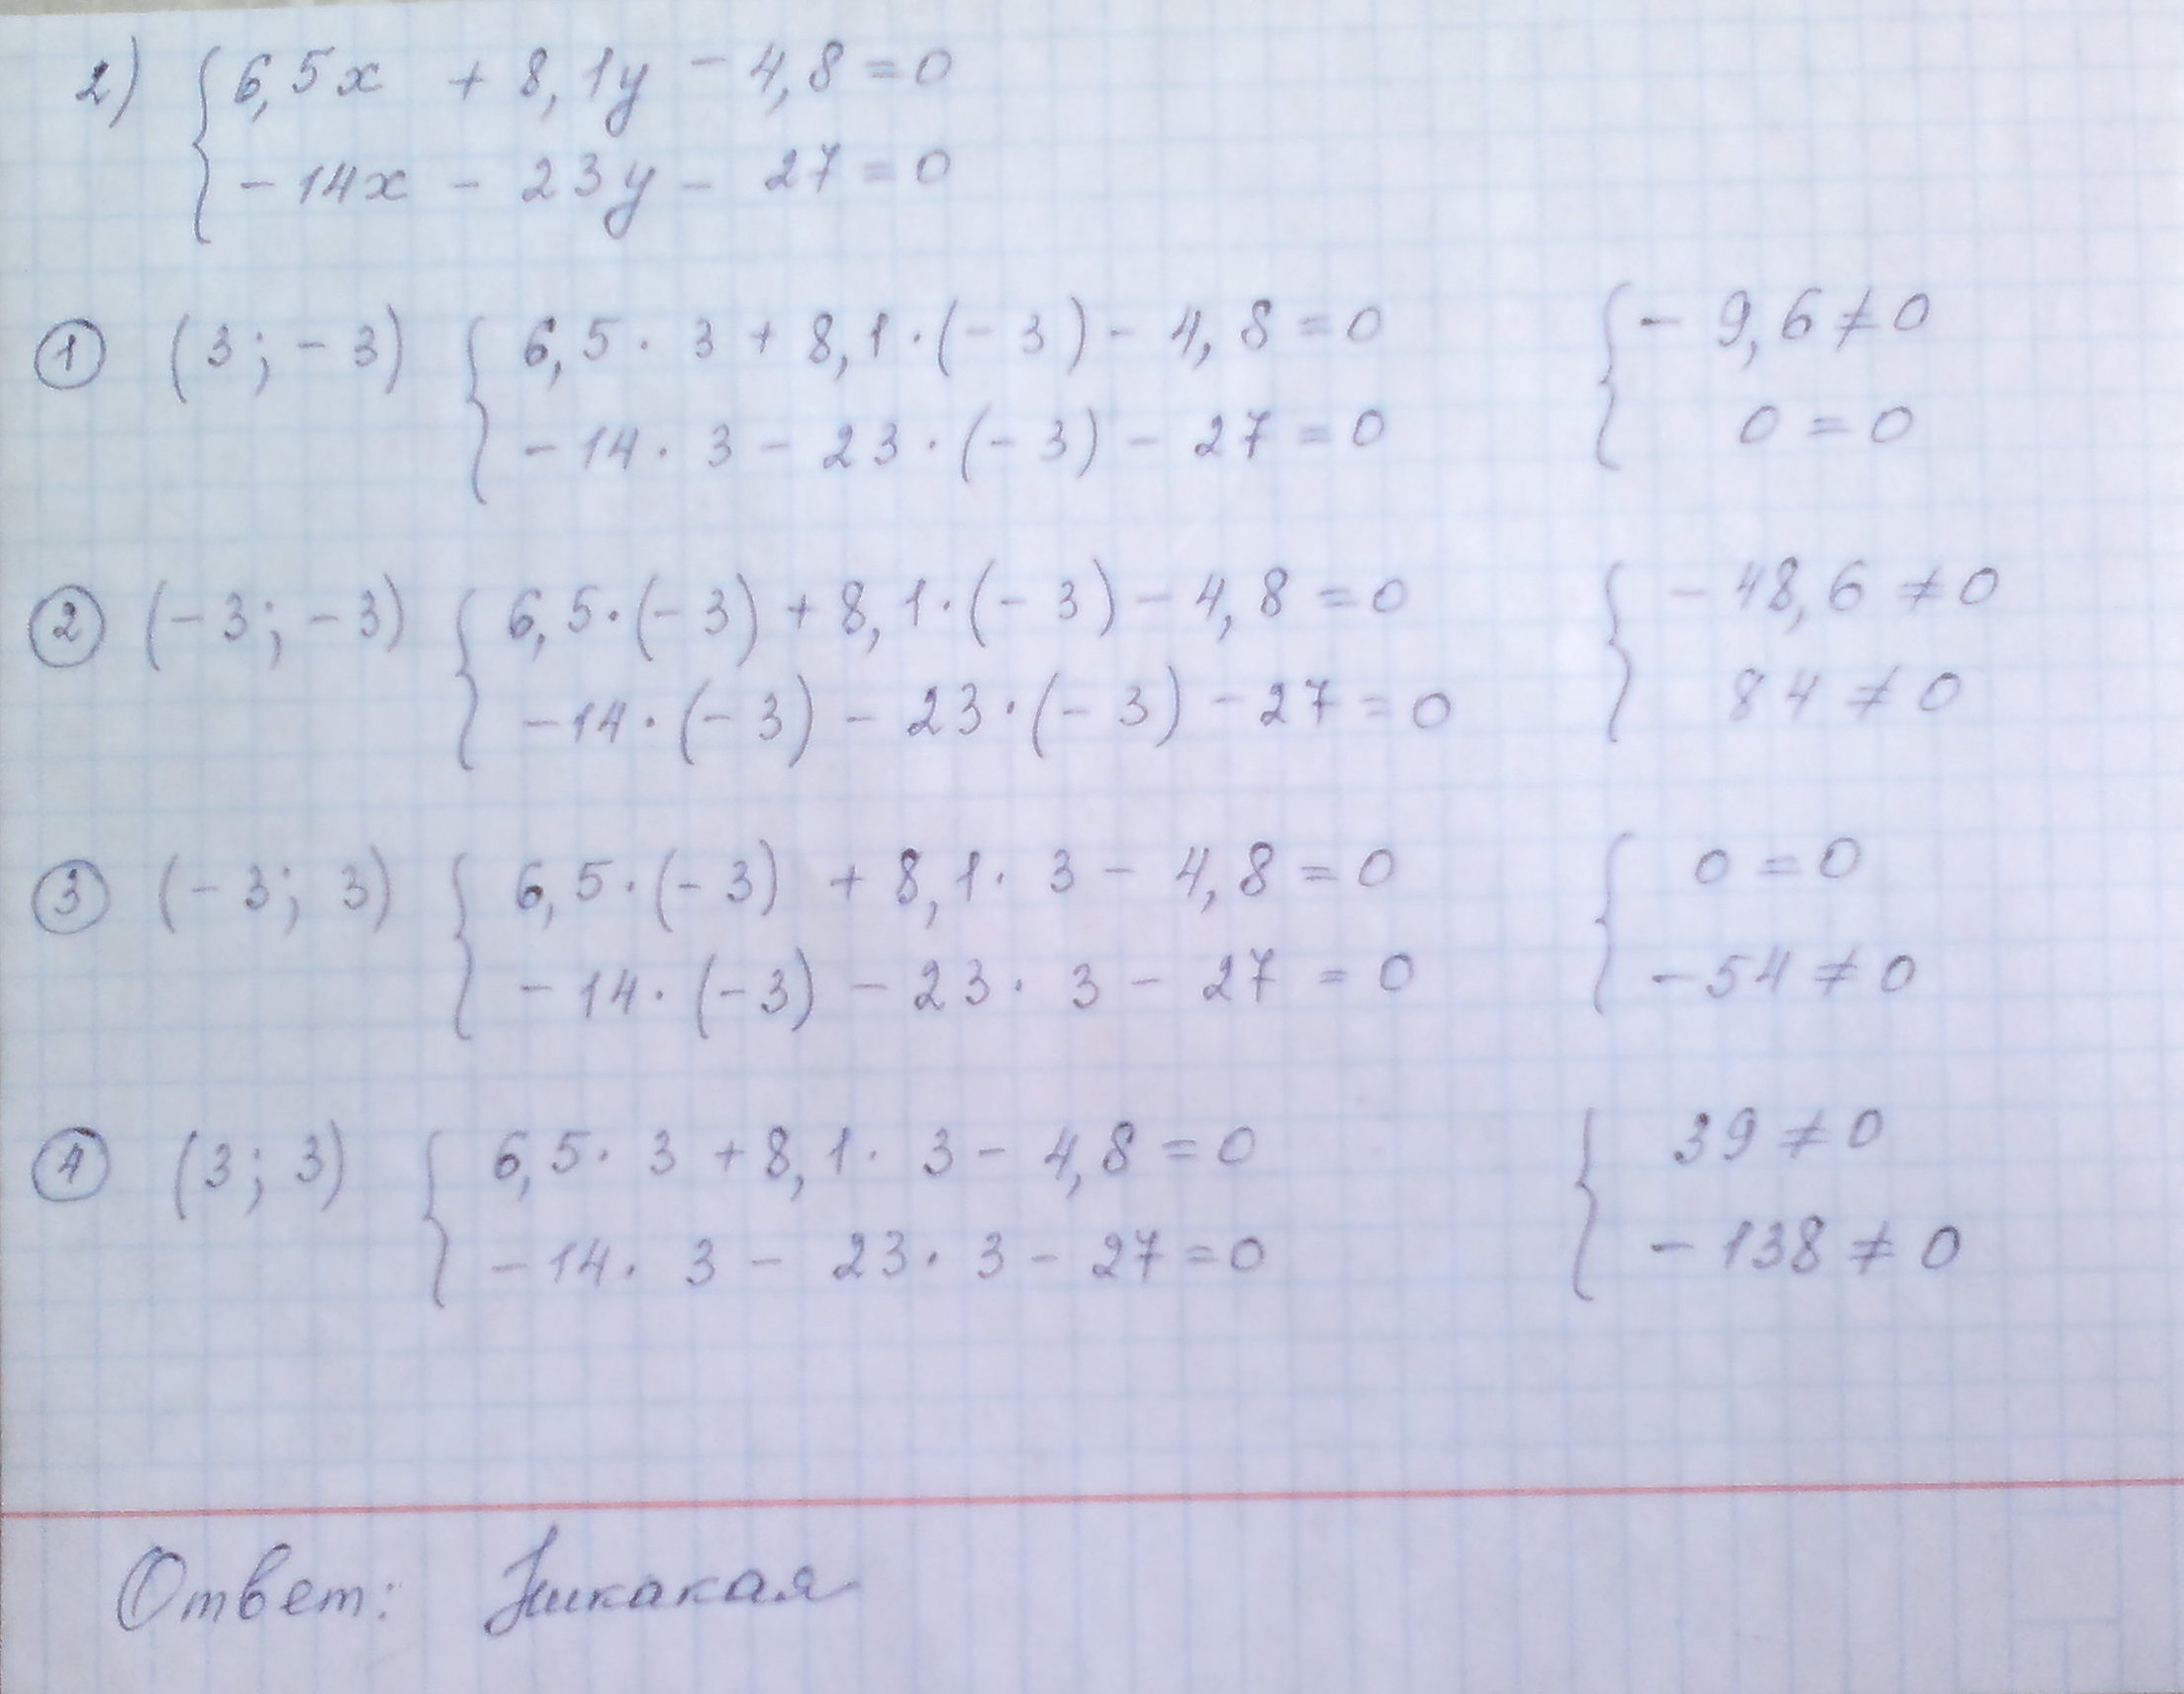 2) { 6,5x + 8,1y - 4,8 = 0
- 14x - 23y - 27 = 0
① (3; -3) { 6,5 · 3 + 8,1 · (-3) - 4,8 = 0 { - 9,6 ≠ 0
- 14 · 3 - 23 · (-3) - 27 = 0 0 = 0
② (-3; -3) { 6,5 · (-3) + 8,1 · (-3) - 4,8 = 0 { - 48,6 ≠ 0
- 14 · (-3) - 23 · (-3) - 27 = 0 84 ≠ 0
③ (-3; 3) { 6,5 · (-3) + 8,1 · 3 - 4,8 = 0 { 0 = 0
- 14 · (-3) - 23 · 3 - 27 = 0 - 54 ≠ 0
④ (3; 3) { 6,5 · 3 + 8,1 · 3 - 4,8 = 0 { 39 ≠ 0
- 14 · 3 - 23 · 3 - 27 = 0 - 138 ≠ 0
Ответ: Никакая